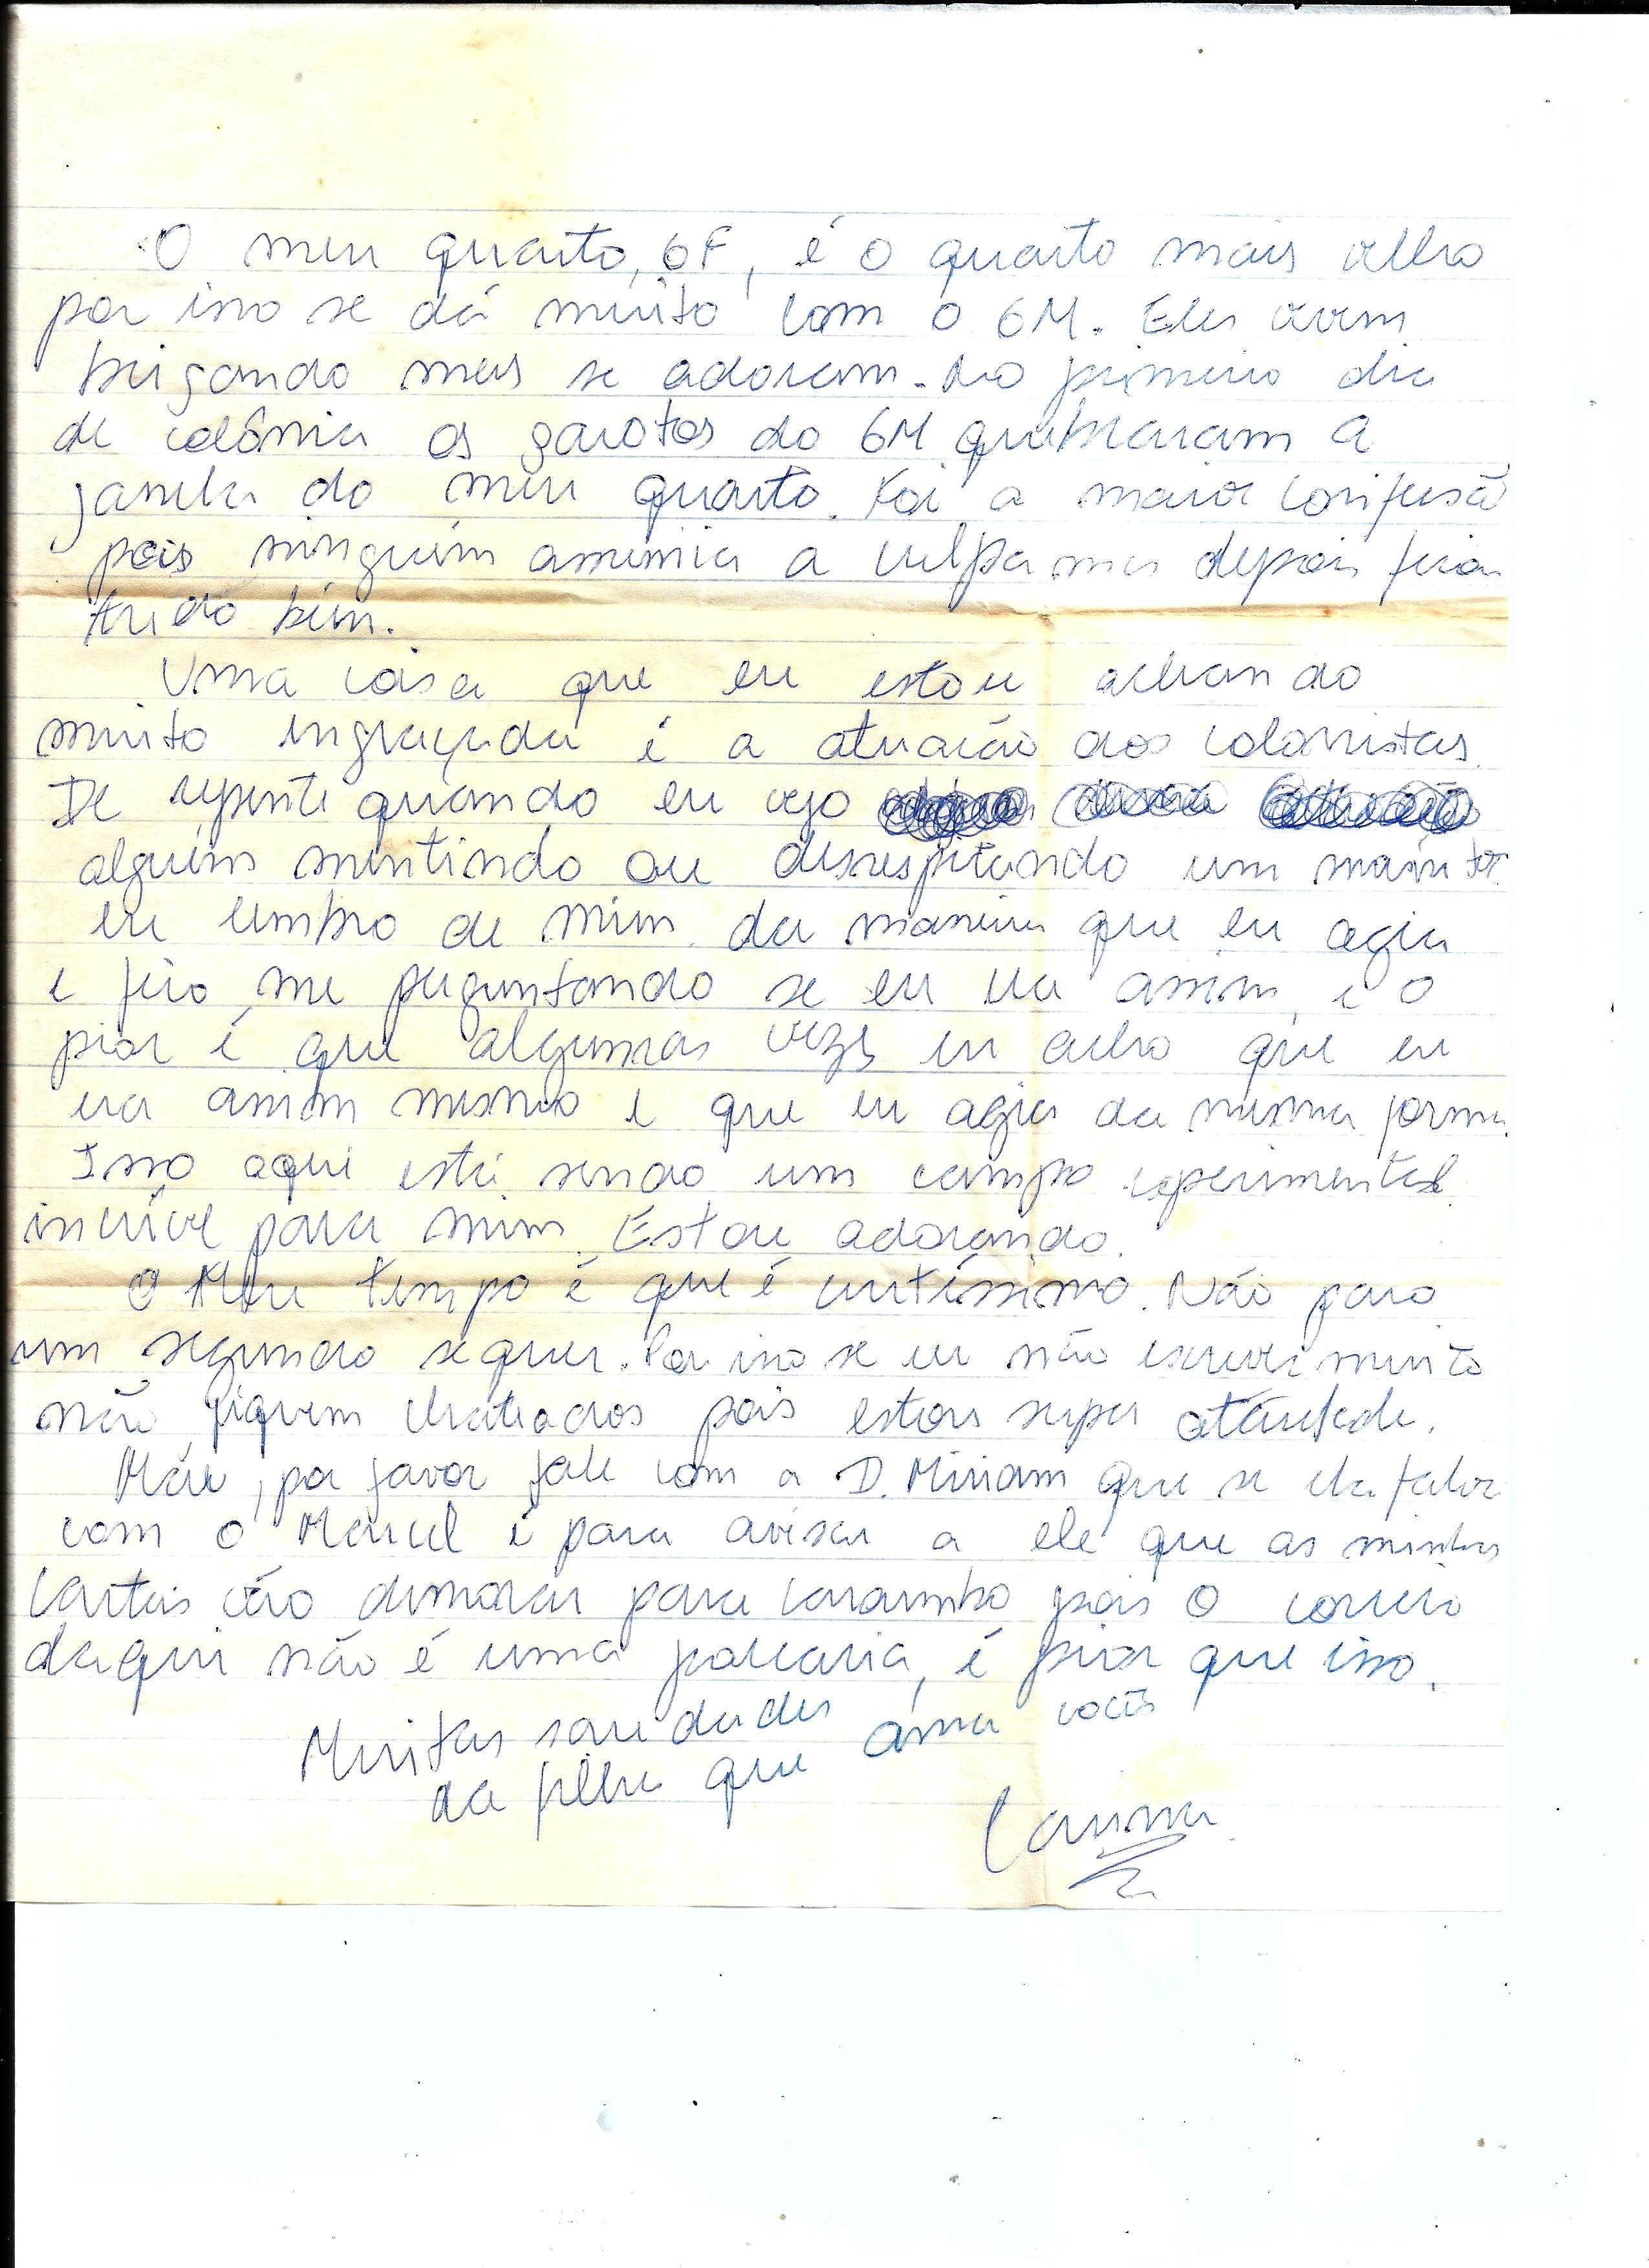 O meu quarto, 6F, é o quarto mais velho
por isso se dá muito com o 6M. Eles vivem
brigando mas se adoram. No primeiro dia
de colônia os garotos do 6M quebraram a
janela do meu quarto. Foi a maior confusão
pois ninguém assumia a culpa mas depois ficou
tudo bem.
Uma coisa que eu estou achando
muito engraçada é a atuação dos colonistas.
De repente quando eu vejo
alguém mentindo ou desrespeitando um monitor
eu lembro de mim da maneira que eu agia
e fico me perguntando se eu era assim, e o
pior é que algumas vezes eu acho que eu
era assim mesmo e que eu agia da mesma forma.
Isso aqui está sendo um campo experimental
incrível para mim. Estou adorando.
O Meu tempo é que é curtíssimo. Não paro
um segundo sequer. Por isso se eu não escrever muito
não fiquem chateados pois estou super atarefada.
Mãe, por favor fale com a D. Miriam que se ela falar
com o Marcel é para avisar a ele que as minhas
cartas vão demorar para caramba pois o correio
daqui não é uma porcaria, é pior que isso.
Muitas saudades
da filha que ama vocês